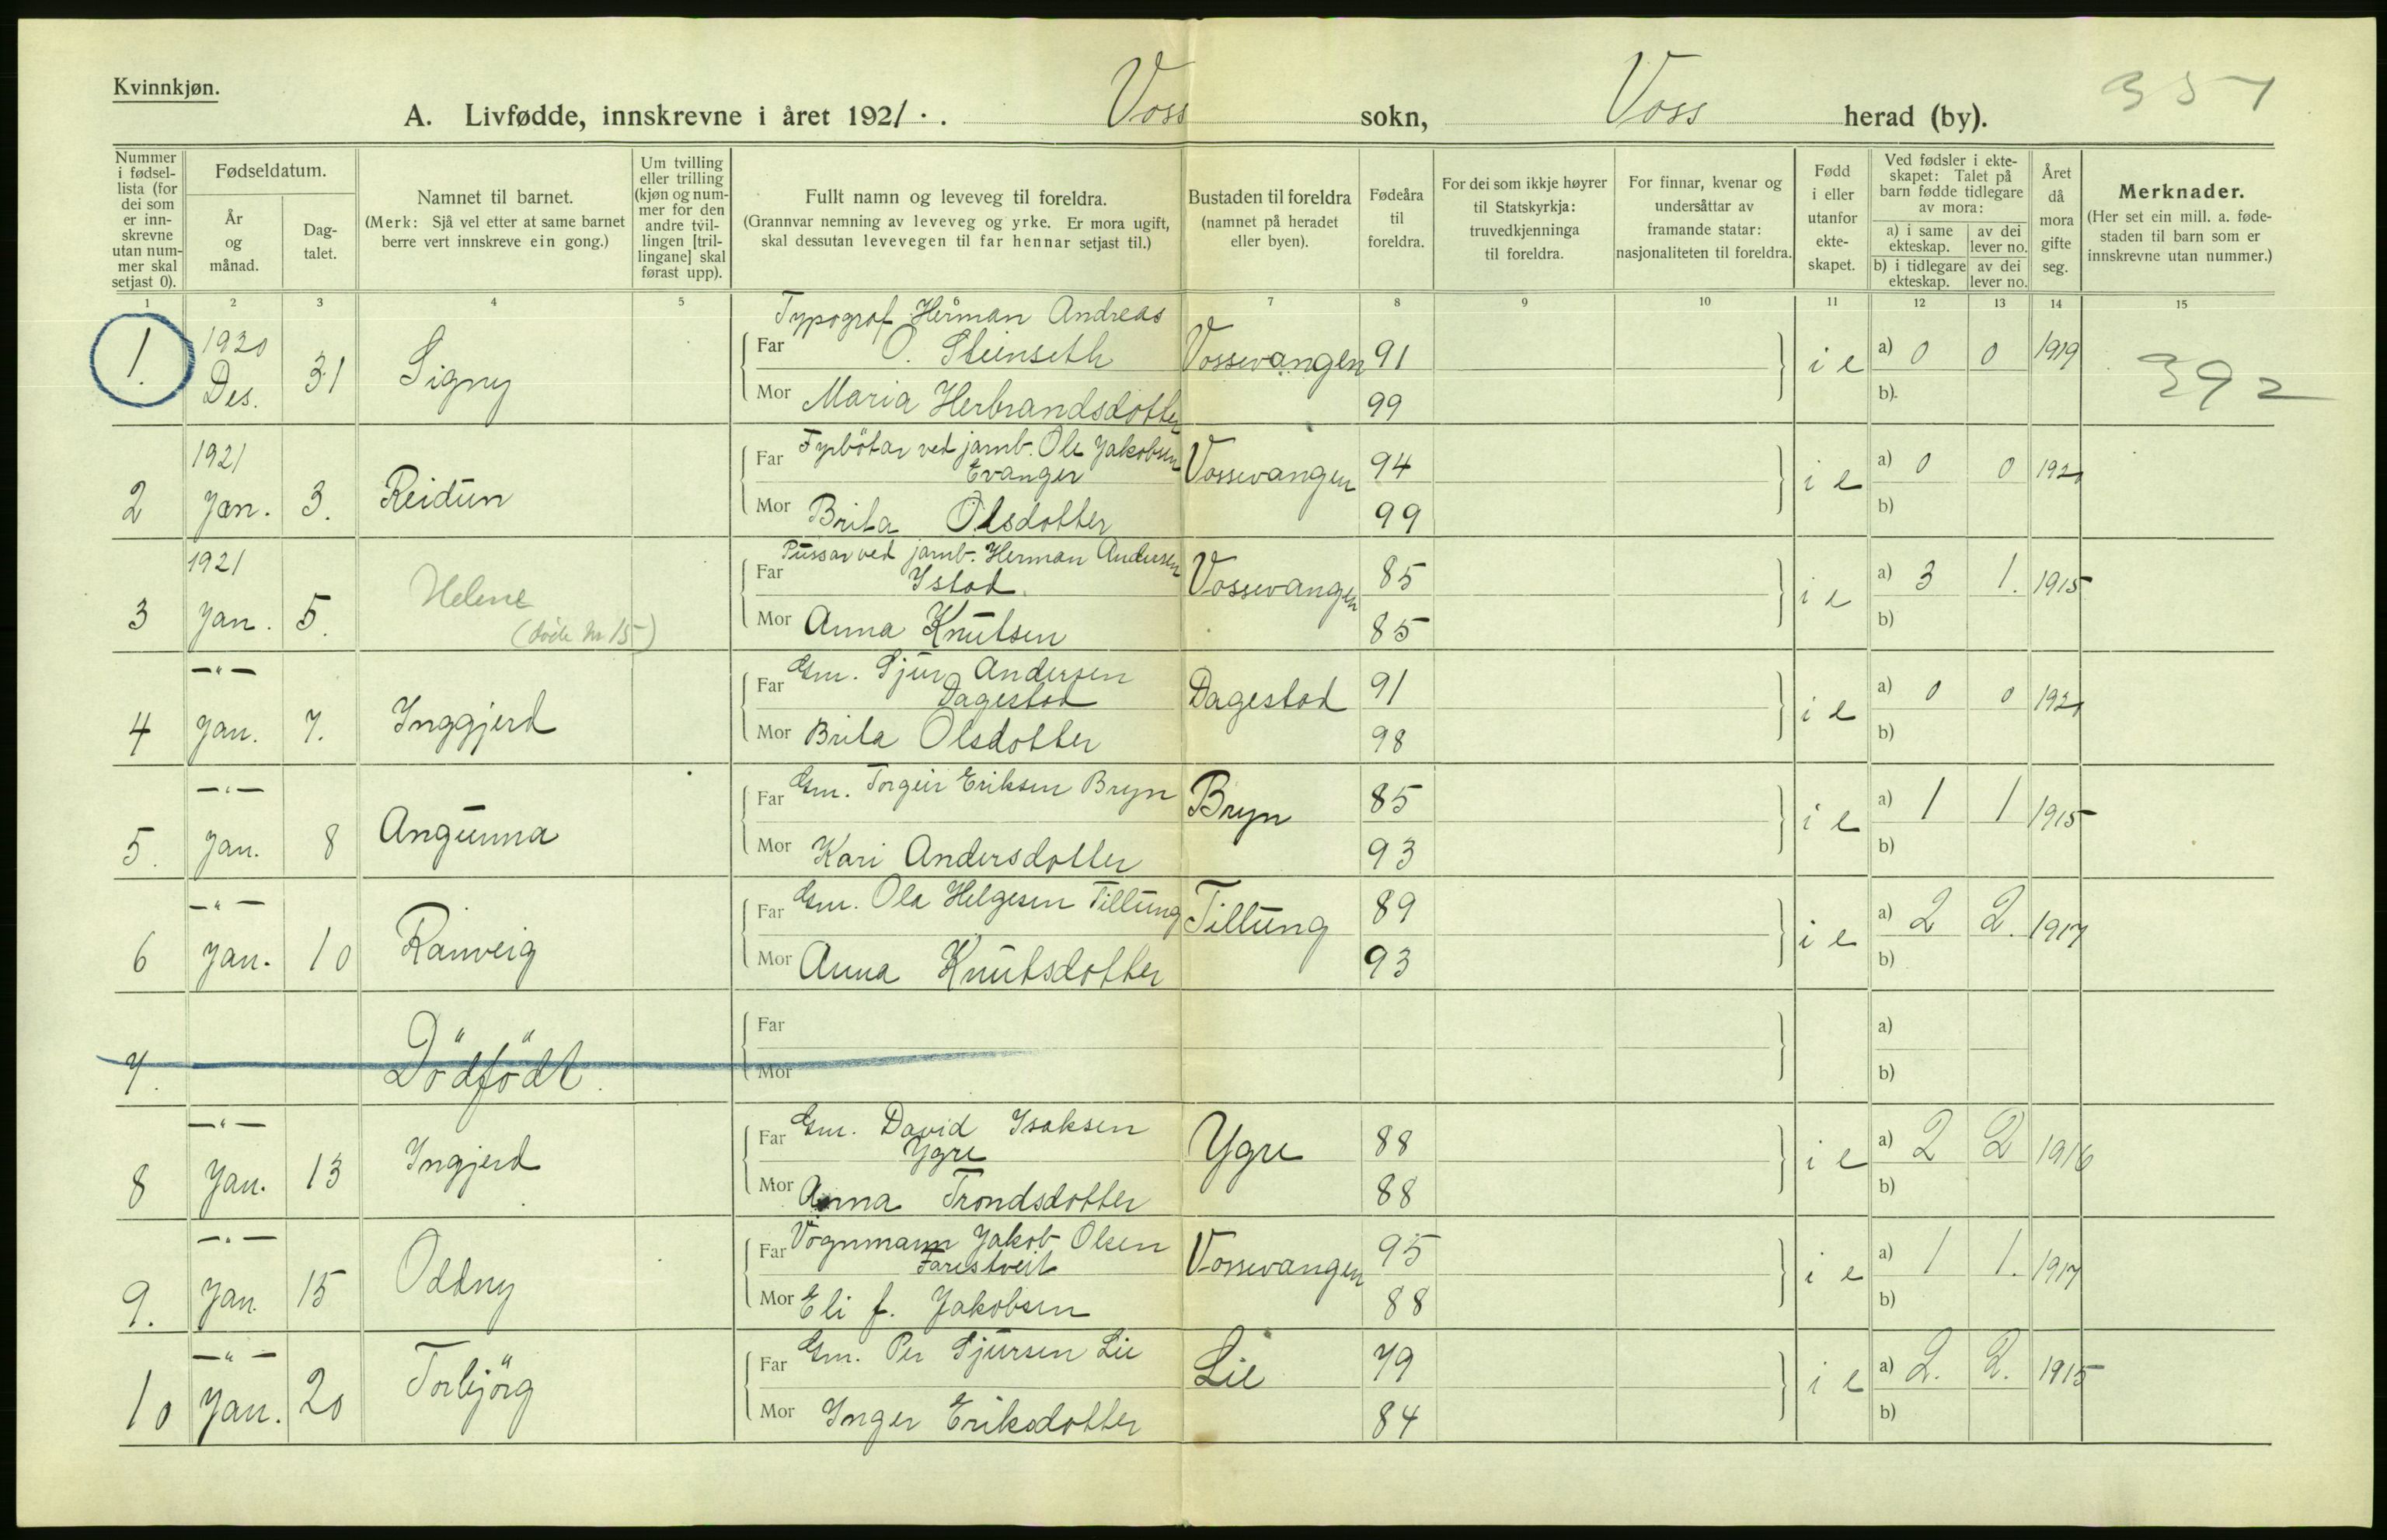 Kvinnkjøn.
A. Livfødde, innskrevne i året 1921. Voss sokn, Voss herad (by).
351
Nummer i fødsel-lista (for dei som er inn-skrevne utan num-mer skal setjast 0).
Fødseldatum.
År og månad.
Dag-talet.
Namnet til barnet.
(Merk: Sjå vel etter at same barnet berre vert innskreve ein gong.)
Um tvilling eller trilling (kjøn og num-mer for den andre tvil-lingen [tril-lingane] skal førast upp).
Fullt namn og leveveg til foreldra.
(Grannvar nemning av leveveg og yrke. Er mora ugift, skal dessutan levevegen til far hennar setjast til.)
Bustaden til foreldra (namnet på heradet eller byen).
Fødeåra til foreldra.
For dei som ikkje høyrer til Statskyrkja: truvedkjenninga til foreldra.
For finnar, kvenar og undersåttar av framande statar: nasjonaliteten til foreldra.
Fødd i eller utanfor ekte-skapet.
Ved fødsler i ekte-skapet: Talet på barn fødde tidlegare av mora:
a) i same ekteskap. av dei lever no.
b) i tidlegare ekteskap. av dei lever no.
Året då mora gifte seg.
Merknader.
(Her set ein mill. a. føde-staden til barn som er innskrevne utan nummer.)
1 2 3 4 5 7 8 9 10 11 12 13 14 15
1. 1920 Des. 31 Signy
Typograf Herman Andreas
Far O. Steinseth Vossevangen 91 i e a) 0 0 1919
Mor Maria Herbrandsdotter 99 b)
392
2 1921 Jan. 3. Reidun
Far Fyrbötar ved jarnb. Ole Jakobsen
Evanger Vossevangen 94 i e a) 0 0 1920
Mor Brita Olsdotter 99 b)
3 1921 Jan. 5. Helene
(døde Nr 15)
Far Pussar ved jarnb. Herman Andersen
Istad. Vossevangen 85 i e a) 3 1. 1915
Mor Anna Knutsen 85 b)
4 —"— Jan. 7. Inggjerd
Far Gm. Sjur Andersen
Dagestad Dagestad 91 i e a) 0 0 1920
Mor Brita Olsdotter 98 b)
5. —"— Jan. 8 Angunna
Far Gm. Torgeir Eriksen Bryn Bryn 85 i e a) 1 1 1915
Mor Kari Andersdotter 93 b)
6 —"— Jan. 10 Ranveig
Far Gm. Ola Helgesen Tillung Tillung 89 i e a) 2 2. 1917
Mor Anna Knutsdotter 93 b)
7. Dödfödt.
Far a)
Mor b)
8 —"— Jan. 13 Ingjerd
Far Gm. David Isaksen
Ygre Ygre 88 i e a) 2 2 1916
Mor Anna Trondsdotter 88 b)
9. —"— Jan. 15 Oddny
Far Vognmann Jakob Olsen
Farestveit Vossevangen 95 i e a) 1 1. 1917
Mor Eli f. Jakobsen 88 b)
10 —"— Jan. 20 Torbjörg
Far Gm. Per Sjursen Lie Lie 79 i e a) 2. 2. 1915
Mor Inger Eriksdotter 84 b)